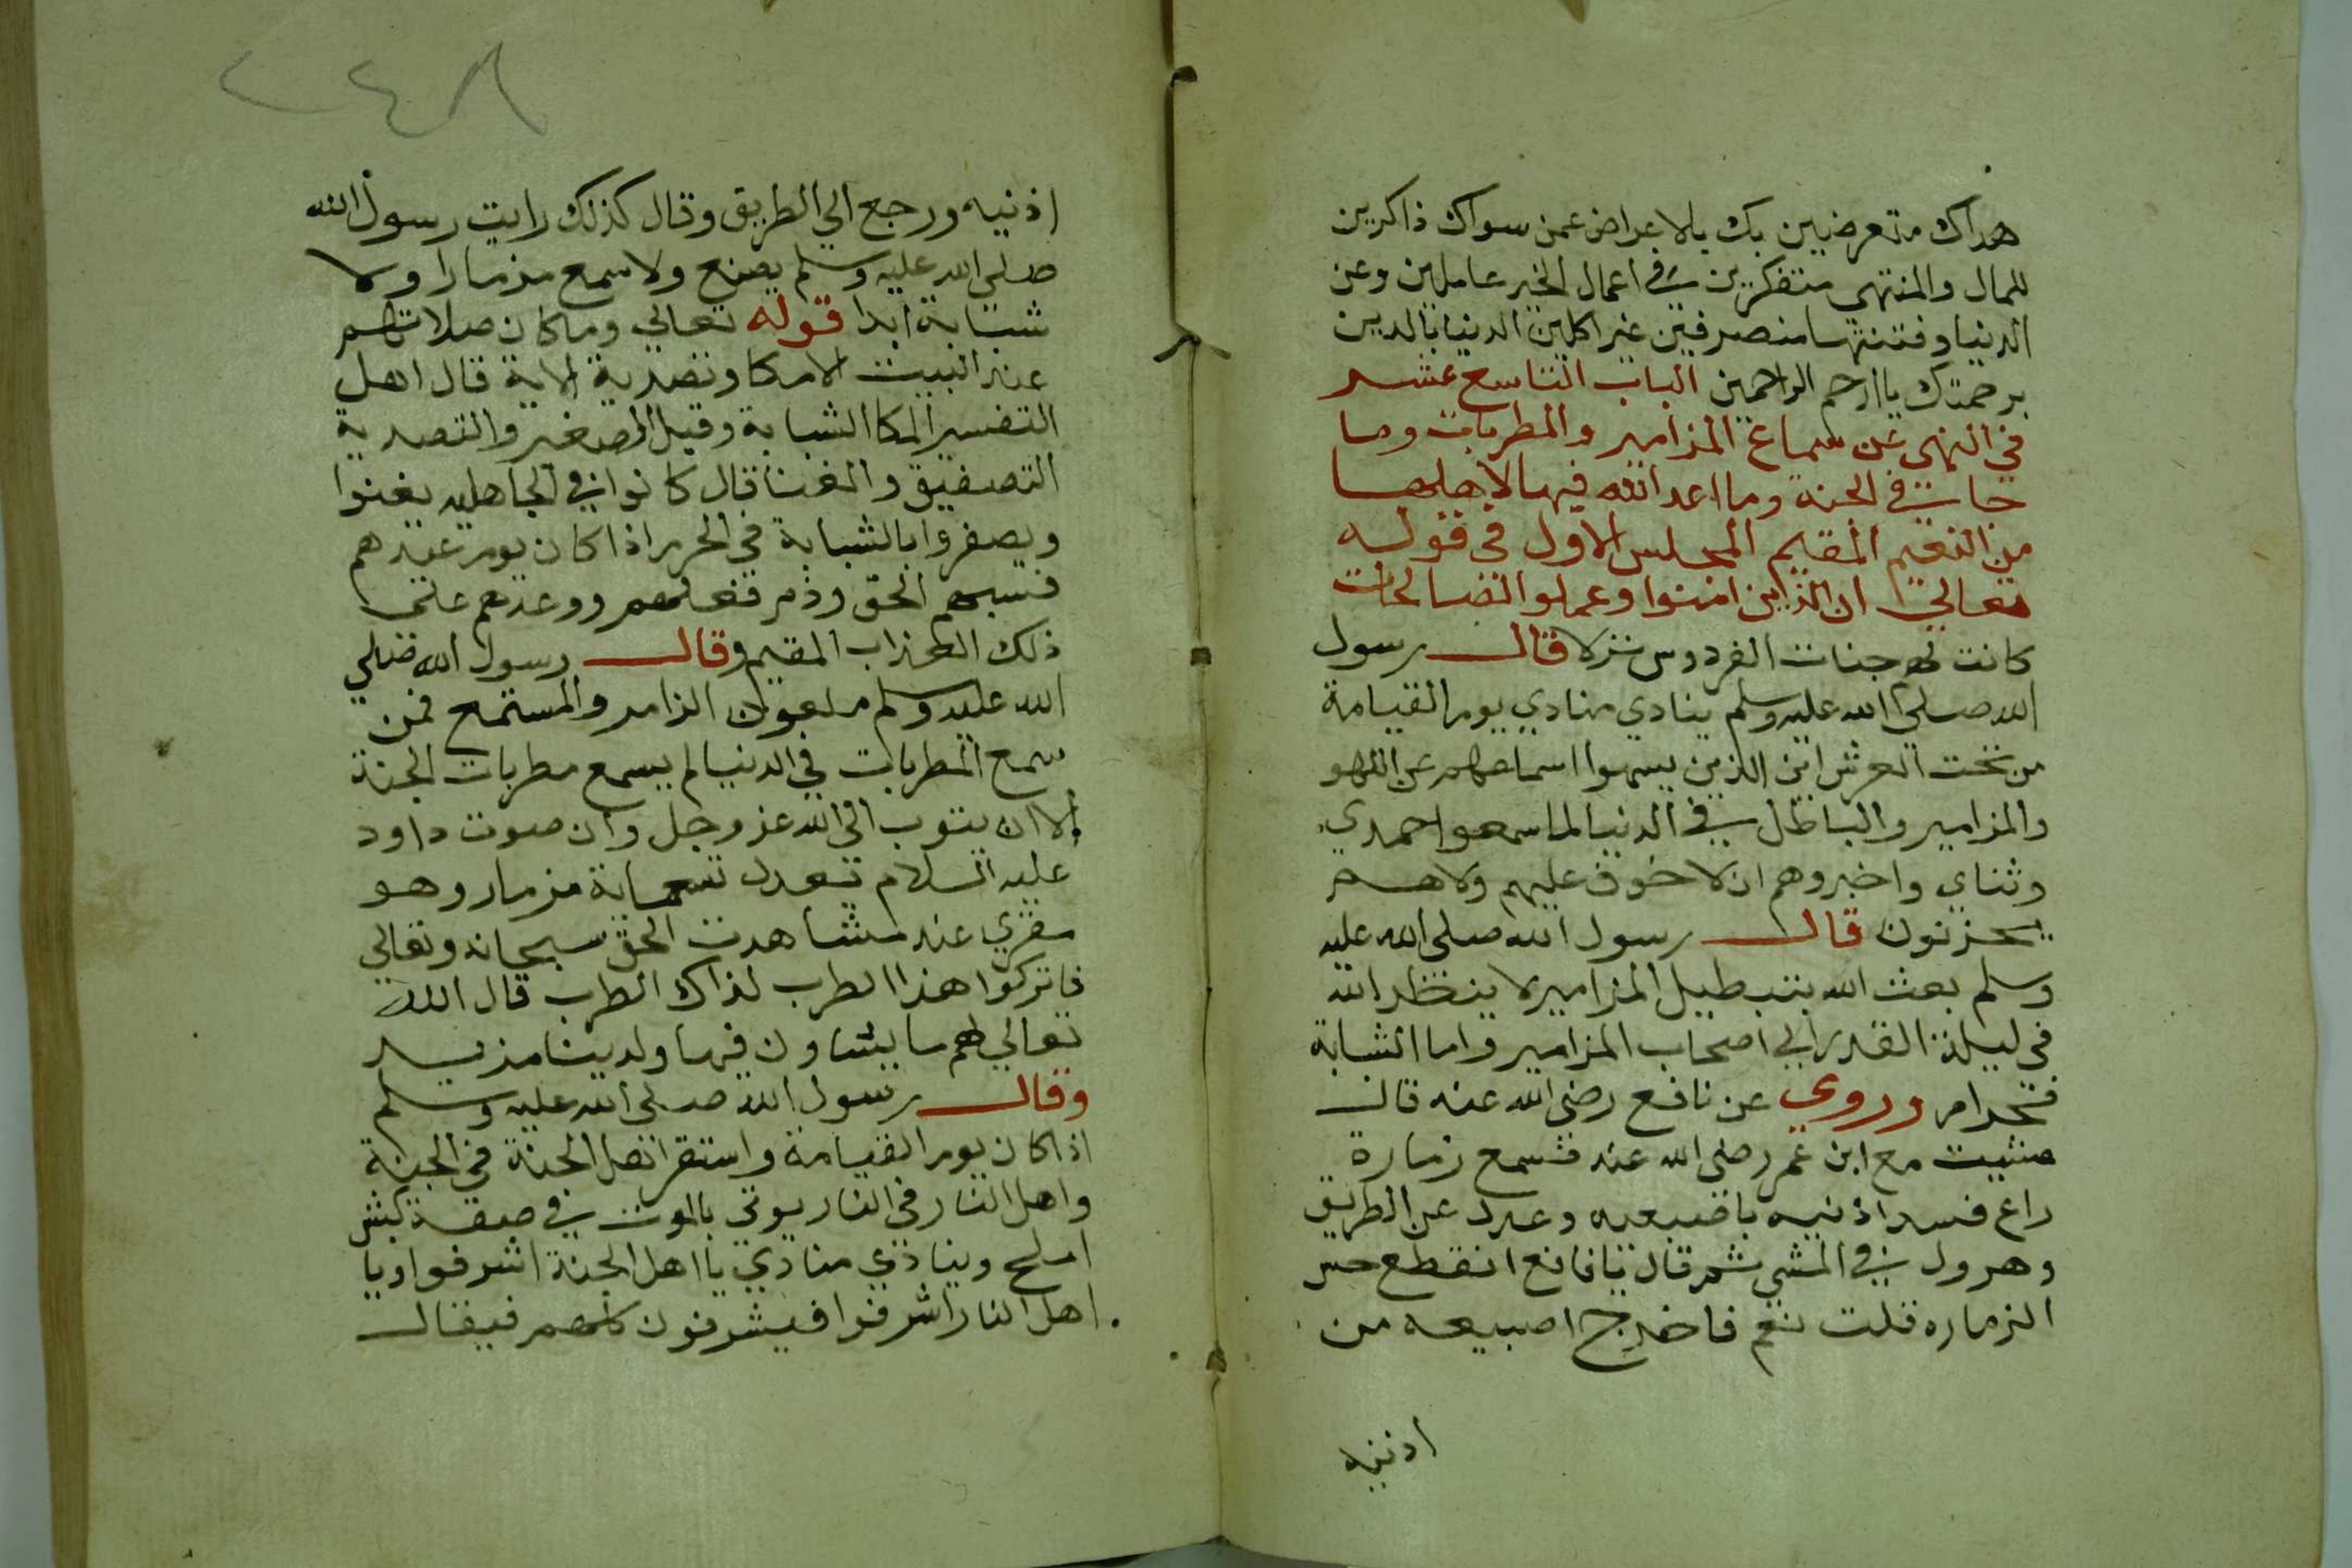 هداك متعرضين بك بالاعراض عمن سواك ذاكرين
للمال والمنتهى متفكرين في اعمال الخير عاملين وعن
الدنيا وفتنتها منصرفين غير اكلين الدنيا بالدين
برحمتك يا ارحم الراحمين الباب التاسع عشر
في النهي عن سماع المزامير والمطربات وما
جا في الجنة وما اعد الله فيها لاهلها
من النعيم المقيم المجلس الاول في قوله
تعالي ان الذين امنوا وعملو الصالحات
كانت لهم جنات الفردوس نزلا قال رسول
الله صلى الله عليه وسلم ينادي منادي يوم القيامة
من تحت العرش اين الذين اسماعهم عن اللهو
والمزامير والباطل في الدنيا لما سمعوا حمدي
وثناي واخبروهم ان لا خوف عليهم ولا هم
يحزنون قال رسول الله صلى الله عليه
وسلم بعث الله المزامير لا ينظر الله
في ليلة القدر الي اصحاب المزامير واما الشبابة
فحرام وروي عن نافع رضي الله عنه قال
مشيت مع ابن عمر رضي الله عنه فسمع زمارة
راع فسد اذنيه باصبعيه وعدل عن الطريق
وهرول في المشي ثم قال يا نافع انقطع حس
الزماره قلت نعم فاخرج اصبيعه من
اذنيه
٢٤٨
اذنيه ورجع الي الطريق وقال كذلك رايت رسول الله
صلى الله عليه وسلم يصنع ولا سمع مزمارا ولا
شبابة ابدا قوله تعالي وما كان صلاتهم
عند البيت الا مكا وتصدية الاية قال اهل
التفسير المكا الشبابة وقيل الصفير والتصدية
التصفيق والغنا قال كانوا في الجاهليه يغنوا
ويصفروا بالشبابة في الحرم اذا كان يوم عيدهم
الحق وذم فعلهم ووعدهم على
ذلك العذاب المقيم وقال رسول الله صلي
الله عليه وسلم ملعون الزامر والمستمع فمن
سمع المطربات في الدنيا لم يسمع مطربات الجنة
الا ان يتوب الى الله عز وجل وان صوت داود
عليه السلام يعدل تسعماية مزمار وهو
مقري عند مشاهدت الحق سبحانه وتعالي
فاتركوا هذا الطرب لذاك الطرب قال الله
تعالي لهم ما يشاون فيها ولدينا مزيد
وقال رسول الله صلى الله عليه وسلم
اذا كان يوم القيامة واستقر اهل الجنة في الجنة
واهل النار في النار يوتى بالموت في صفة كبش
املح وينادي منادي يا اهل الجنة اشرفوا ويا
اهل النار اشرفوا فيشرفون كلهم فيقال